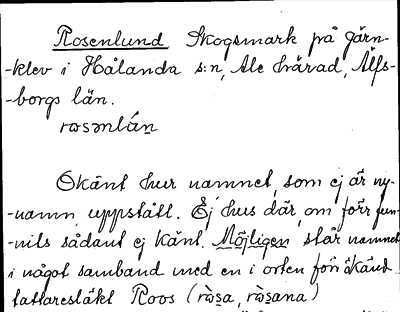 Rosenlund Skogsmark på Järn-
-klev i Hålanda s:n, Ale härad, Älfs-
-borgs län.
rωsənlán̠
Okänt hur namnet, som ej är ny-
-namn, uppstått. Ej hus där, om förr fun-
-nits sådant ej känt. Möjligen står namnet
i något samband med en i orten förr känd
tattaresläkt Roos (rὼs̠a, rὼs̠ana)